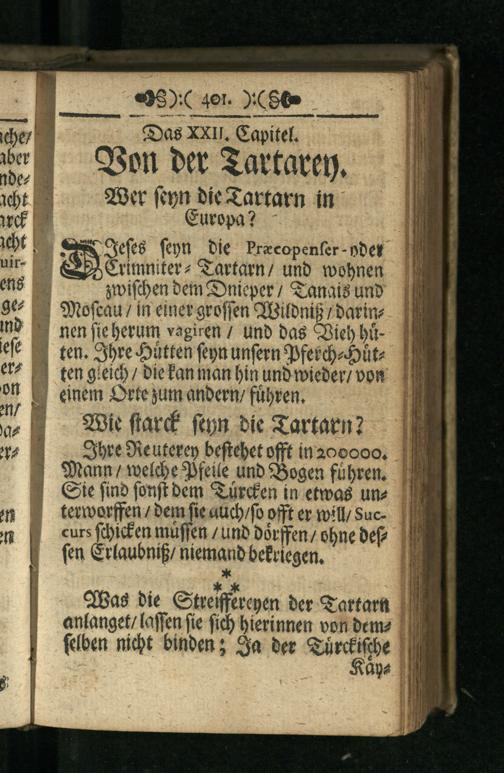 §):( 401. ):(§
Das XXII. Capitel.
Von der Tartarey.
Wer seyn die Tartarn in
Europa?
DJeses seyn die Præcopenser- oder
Crimniter- Tartarn/ und wohnen
zwischen dem Dnieper/ Tanais und
Moscau/ in einer grossen Wildniß/ darin-
nen sie herum vagiren/ und das Vieh hü-
ten. Ihre Hütten seyn unsern Pferch-Hüt-
ten gleich/ die kan man hin und wieder/ von
einem Orte zum andern/ führen.
Wie starck seyn die Tartarn?
Ihre Reuterey bestehet offt in 200000.
Mann/ welche Pfeile und Bogen führen.
Sie sind sonst dem Türcken in etwas un-
terworffen/ dem sie auch/ so offt er will/ Suc-
curs schicken müssen/ und dörffen/ ohne des-
sen Erlaubniß/ niemand bekriegen.
*
* *
Was die Streiffereyen der Tartarn
anlanget/ lassen sie sich hierinnen von dem-
selben nicht binden; Ja der Türckische
Käy-